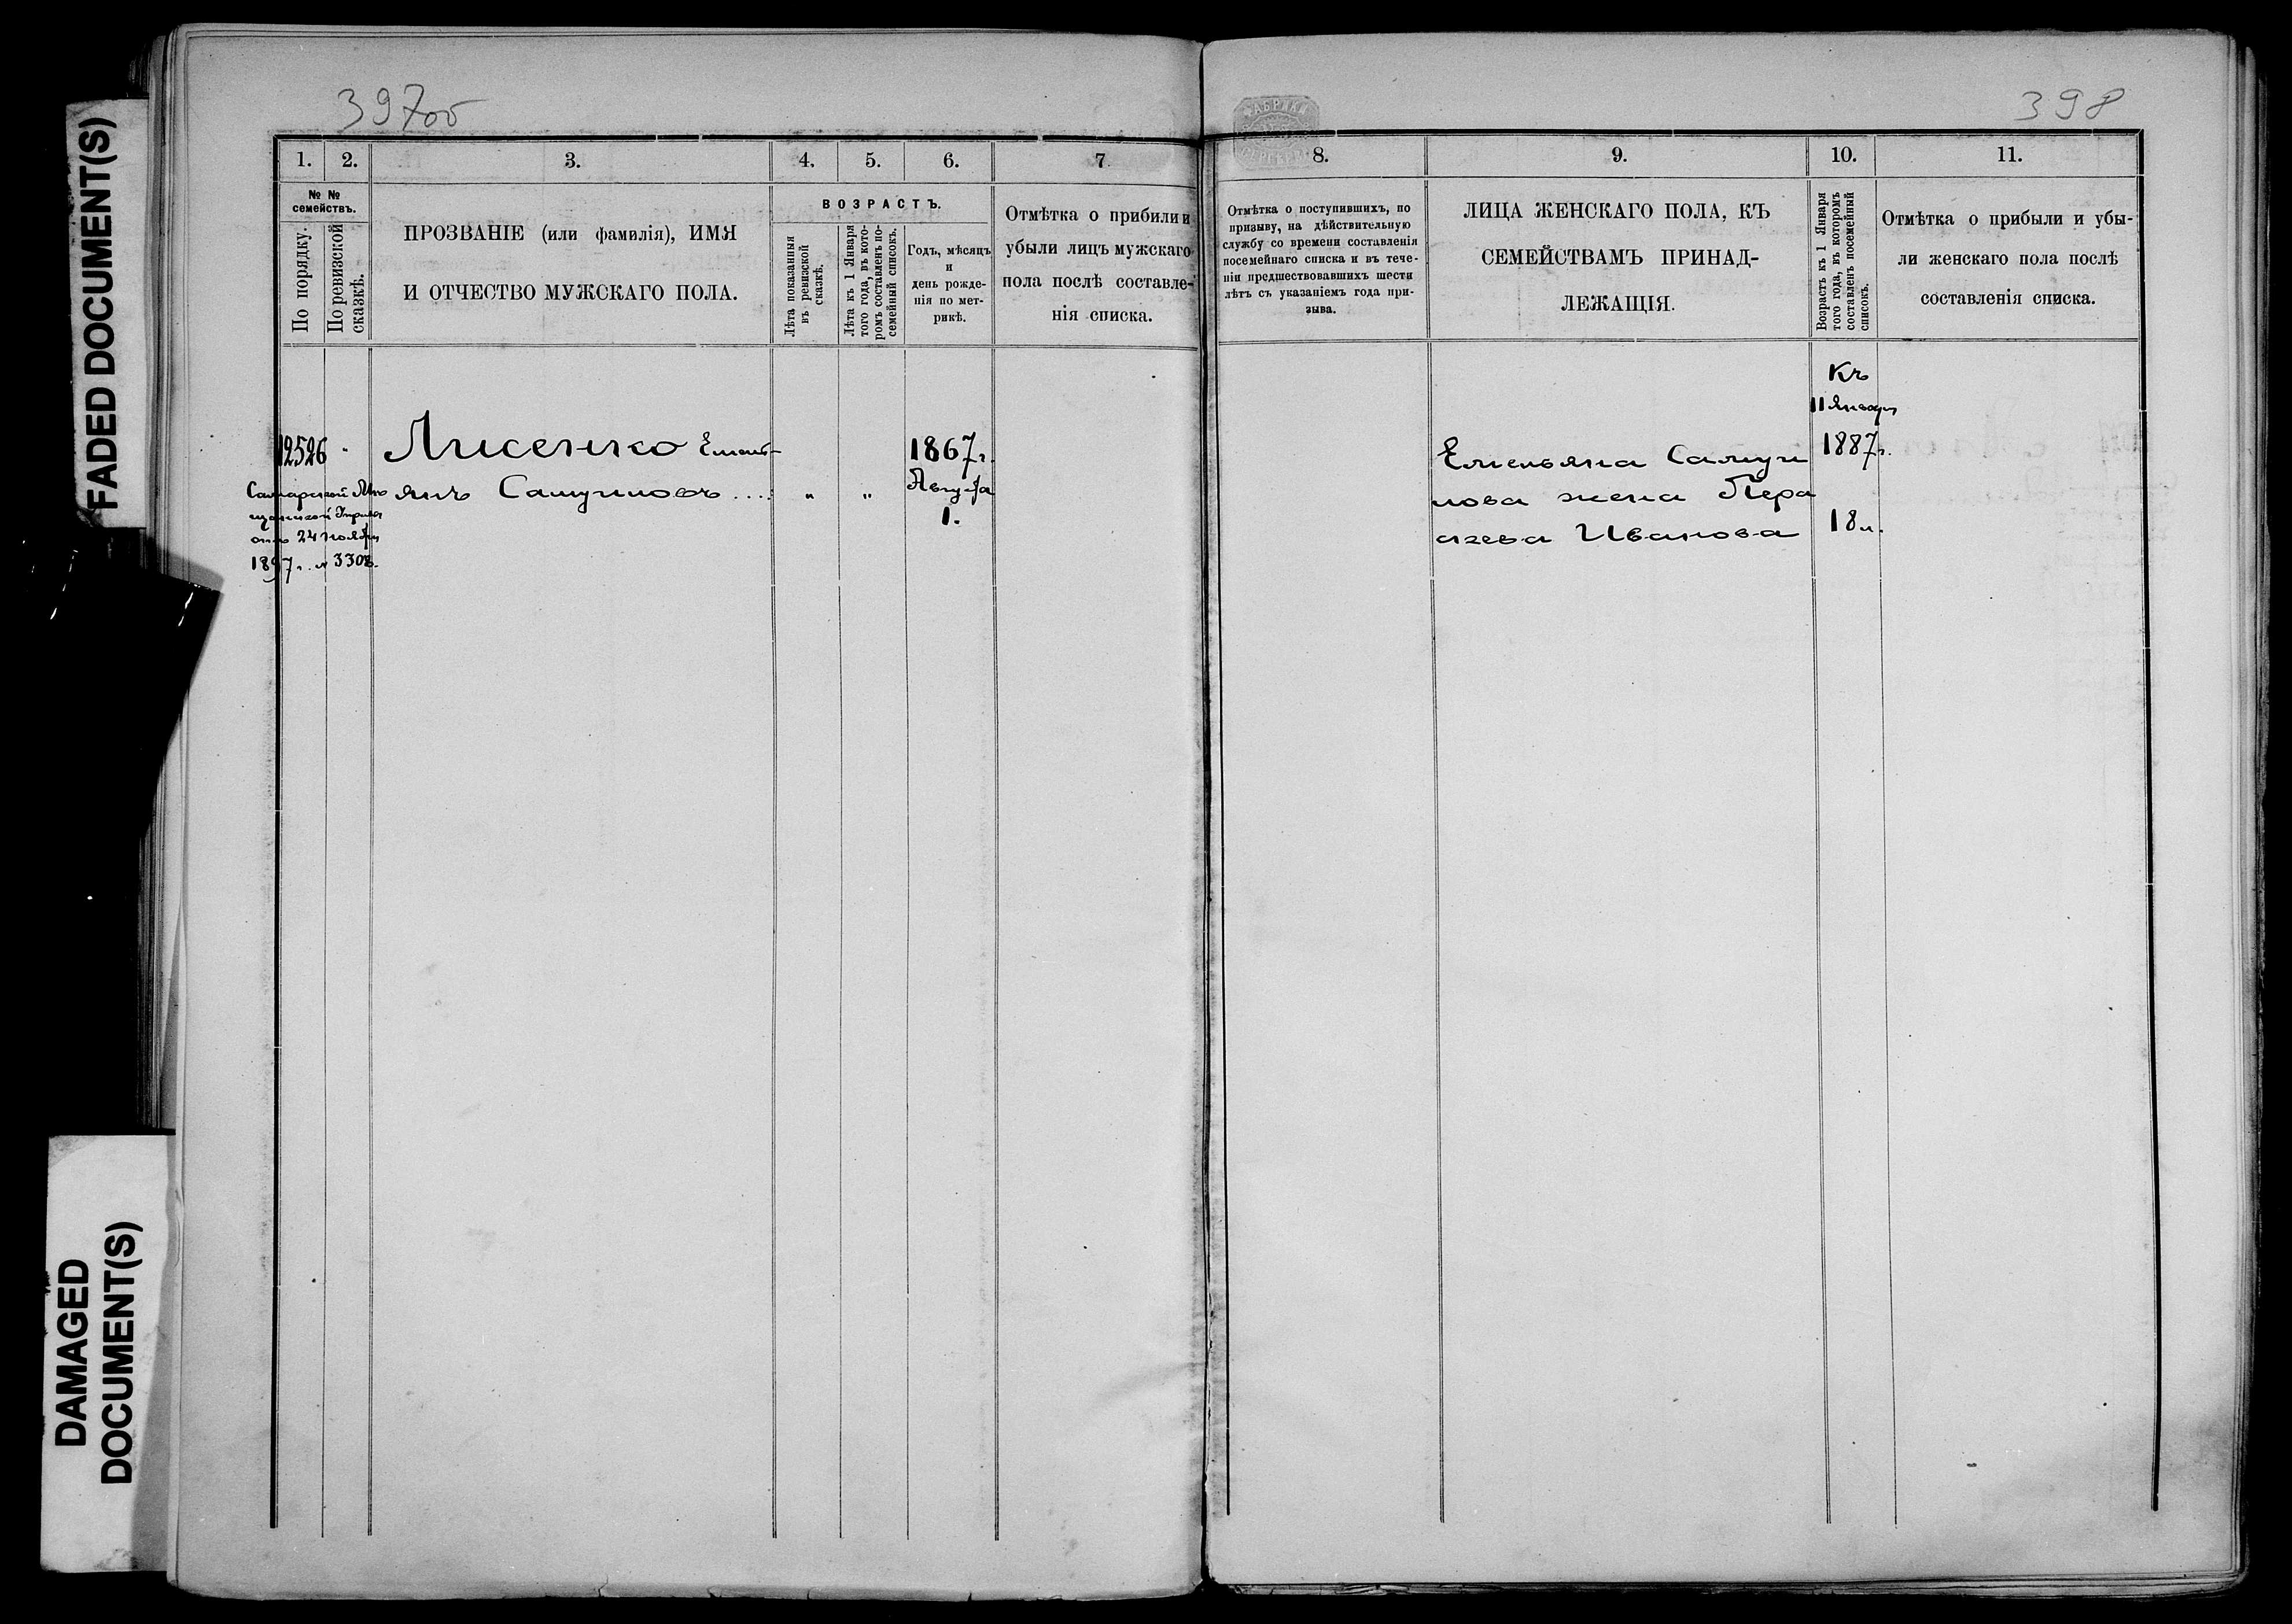 FADED DOCUMENT(S)
DAMAGED
DOCUMENT(S)
397об
1.
2.
3.
4.
5.
6.
7
№ №
семействъ.
По порядку.
По ревизской
сказкѣ.
ПРОЗВАНІЕ (или фамилія), ИМЯ
И ОТЧЕСТВО МУЖСКАГО ПОЛА.
ВОЗРАСТЪ.
Лѣта показанныя
въ ревизской
сказкѣ.
Лѣта къ 1 Января
того года, въ кото-
ромъ составленъ по-
семейный списокъ.
Годъ, мѣсяцъ
и
день рожде-
нія по мет-
рикѣ.
Отмѣтка о прибыли и
убыли лицъ мужскаго
пола послѣ составле-
нія списка.
12526 "
Лисенко Емель-
янъ Самуиловъ ....
" "
1867г.
Августа
1.
Самарской
отъ 24 Ноября
1897г. № 3308.
398
8.
9.
10.
11.
Отмѣтка о поступившихъ, по
призыву, на дѣйствительную
службу со времени составленія
посемейнаго списка и въ тече-
ніи предшествовавшихъ шести
лѣтъ съ указаніемъ года при-
зыва.
ЛИЦА ЖЕНСКАГО ПОЛА, КЪ
СЕМЕЙСТВАМЪ ПРИНАД-
ЛЕЖАЩІЯ.
Возрастъ къ 1 Января
того года, въ которомъ
составленъ посемейный
списокъ.
Отмѣтка о прибыли и убы-
ли женскаго пола послѣ
составленія списка.
Къ
1 Января
1887г.
18л.
Емельяна Самуи
лова жена Пера
Иванова